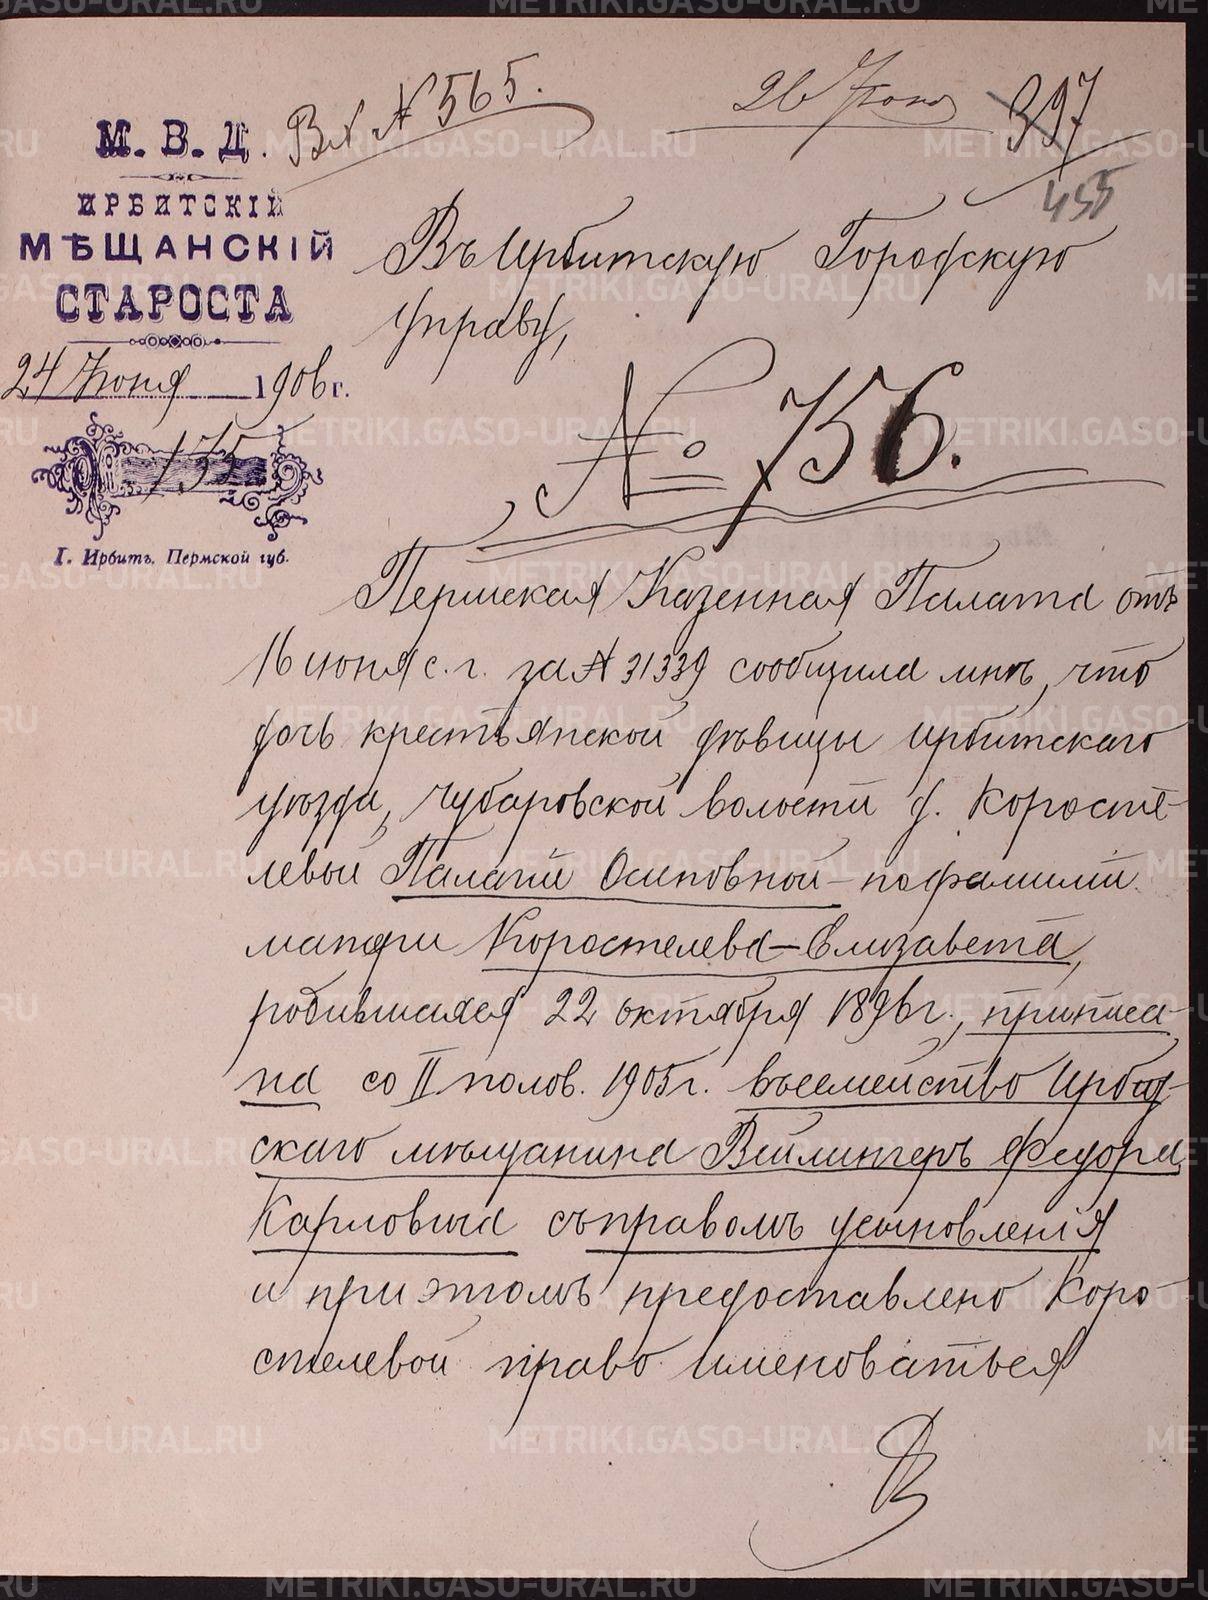 Вх № 565.
26 Июня
397
455
М. В. Д.
ИРБИТСКІЙ
МѢЩАНСКІЙ
СТАРОСТА
24 Июня 1906 г.
135
Г. Ирбитъ. Пермской губ.
Въ Ирбитскую Городскую
Управу,
№ 756.
Пермская Казенная Палата отъ
16 июня с. г. за № 31339 сообщила мнѣ, что
дочь крестьянской дѣвицы Ирбитскаго
уѣзда, Чубаровской волости д. Коросте-
левой Палагіи Осиповной – по фамиліи
матери Коростелева – Елизавета,
родившаяся 22 октября 1896 г., приписа-
на со II полов. 1905 г. въ семейство Ирбит-
скаго мѣщанина Вейлингеръ Федора
Карловича съ правомъ усыновленія
и при этомъ предоставлено Коро-
стелевой право именоваться
METRIKI.GASO-URAL.RU